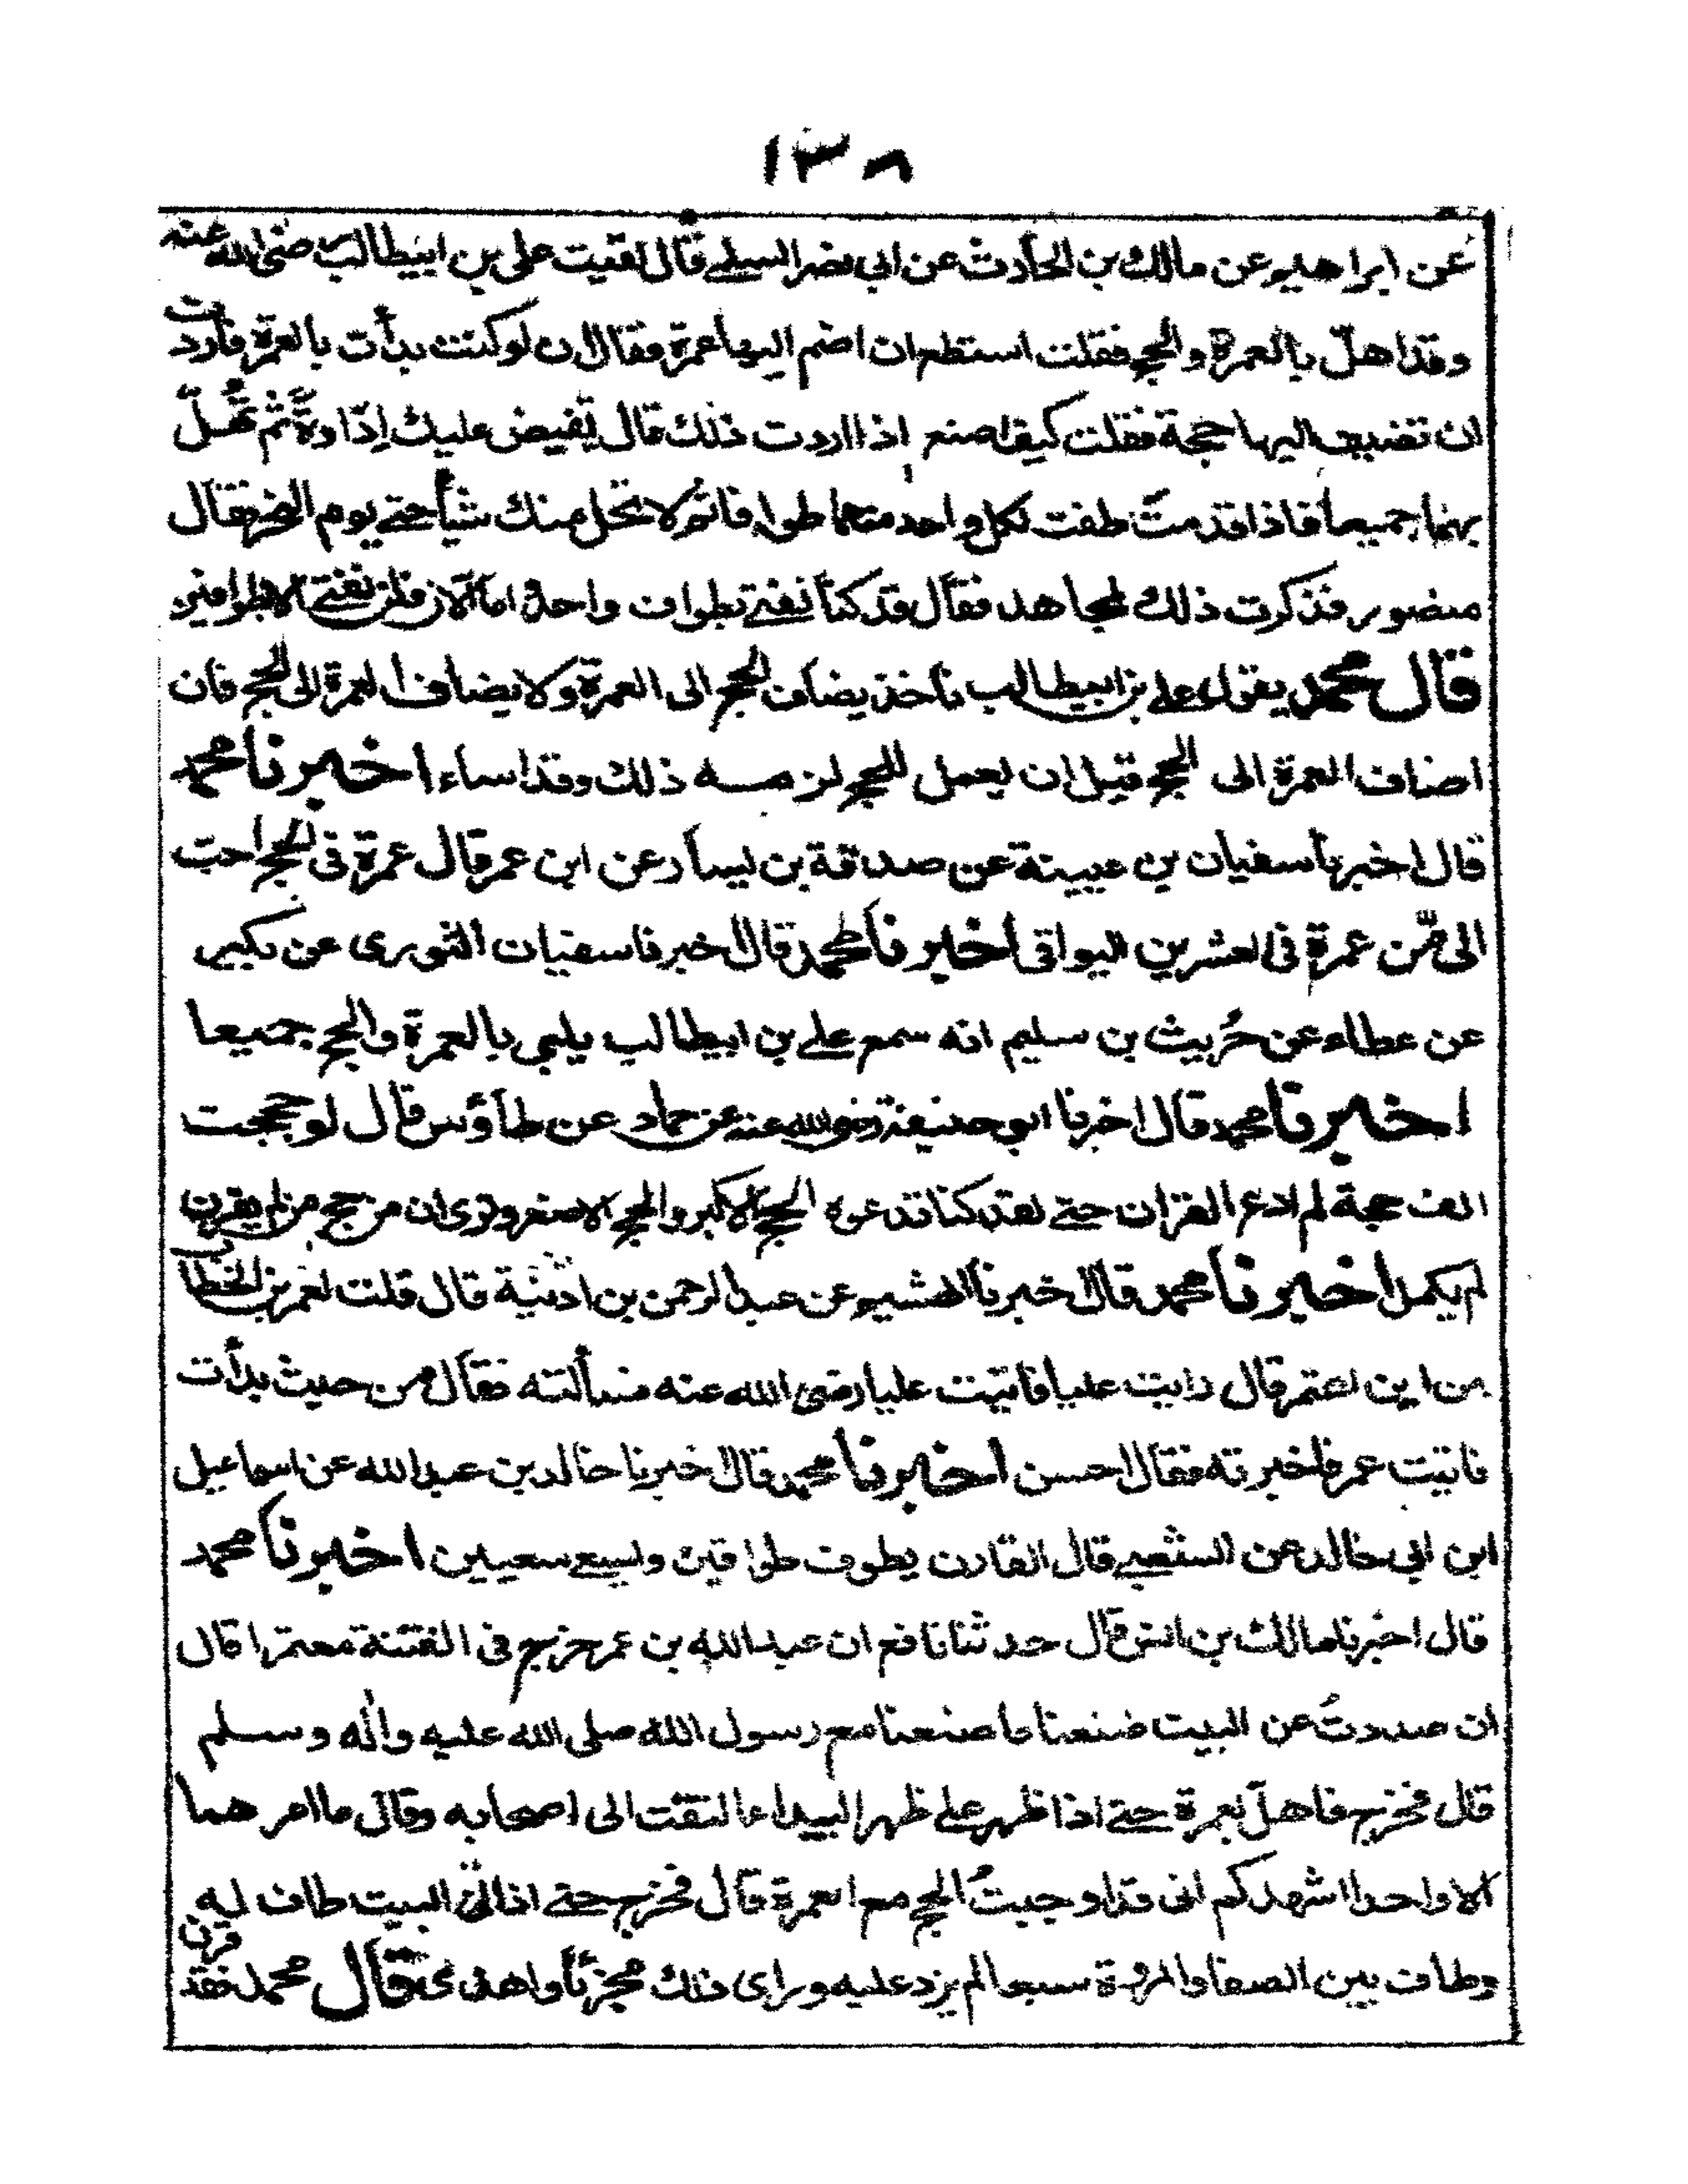 ١٣٨
عن ابراهيم عن مالك بن الحارث عن ابي نصر السلمے قال لقيت علی بن ابيطالب رضی الله عنه
وقد اهلّ بالعمرة والحج فقلت استطع ان اضم اليها عمرة فقال لان لو كنت بدأت بالعمرة فاردت
ان تضيف اليها حجة فقلت كيف اصنع اذا اردت ذلك قال تفيض عليك اداوة ثم تهلّ
بهما جميعا فاذا قدمت طفت لكل واحد منهما طوافا ثم لا تحل منك شيأ حتے يوم النحر فقال
منصور فذكرت ذلك لمجاهد فقال قد كنا نفتے بطواف واحد اما الان فلن نفتے الا بطوافين
قال محمد بقول علے بن ابيطالب ناخذ يضاف الحج الی العمرة ولا يضاف العمرة الی الحج فان
اضاف العمرة الی الحج قبل ان يعمل للحج لزمه ذلك وقد اساء اخبرنا محمد
قال اخبرنا سفيان بن عيينة عن صدقة بن يسار عن ابن عمر قال عمرة فی الحج احب
الی من عمرة فی العشرين البواقی اخبرنا محمد قال اخبرنا سفيان الثوری عن بكير
عن عطاء عن حُريث بن سليم انه سمع علے بن ابيطالب يلبی بالعمرة والحج جميعا
اخبرنا محمد قال اخبرنا ابو حنيفة رضی الله عنه عن حماد عن طاؤس قال لو حججت
الف حجة لم ادع القران حتے لقد كنا ندعوه الحج الاكبر والحج الاصغر ونری ان من حج من لم يقرن
لم يكمل اخبرنا محمد قال اخبرنا هشيم عن عبد الرحمن بن اذنية قال قلت لعمر بن الخطاب
من اين اعتمر قال رايت عليا فاتيت عليا رضی الله عنه فسألته فقال من حيث بدأت
فاتيت عمر فاخبرته فقال احسن اخبرنا محمد قال اخبرنا خالد بن عبد الله عن اسماعيل
ابن ابی خالد عن الشعبے قال القارن يطوف طوافين ويسعے سعيين اخبرنا محمد
قال اخبرنا مالك بن انس قال حدثنا نافع ان عبد الله بن عمر خرج فی الفتنة معتمرا قال
ان صددتُ عن البيت صنعنا ما صنعنا مع رسول الله صلی الله عليه واله وسلم
قال فخرج فاهلّ بعمرة حتے اذا ظهر علے ظهر البيداء التفت الی اصحابه وقال ما امرهما
الا واحدا اشهدكم انی قد اوجبتُ الحج مع العمرة قال فخرج حتے اذا اتی البيت طاف به
وطاف بين الصفا والمروة سبعا لم يزد عليه ورای ذلك مجزئا واهدی قال محمد فقد قرن